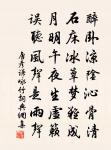 醉臥涼陰沁骨清
石床冰簟夢難成
月明午夜生虛籟
誤聽風聲是雨聲
唐彥謙詠竹詞典網